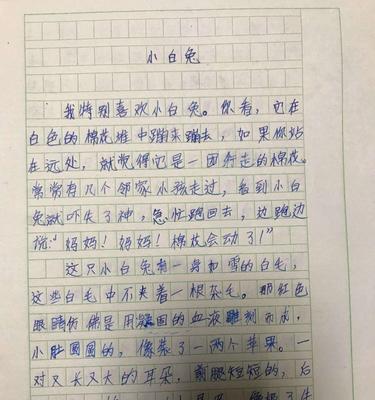 小白兔
我特别喜欢小白兔。你看，它在
白色的棉花堆中蹦来蹦去，如果你站
在远处，就觉得它是一团行走的棉花。
常常有几个邻家小孩走过，看到小白
兔就吓失了神，急忙跑回去，边跑边
说："妈妈！妈妈！棉花会动了！"
这只小白兔有一身如雪的白毛，
这些白毛中不夹着一根杂毛。那红色
眼睛仿佛是用凝固的血液雕刻而成，
小肚圆圆的，像装了一两个苹果。一
对又长又大的耳朵，前腿短短的，后